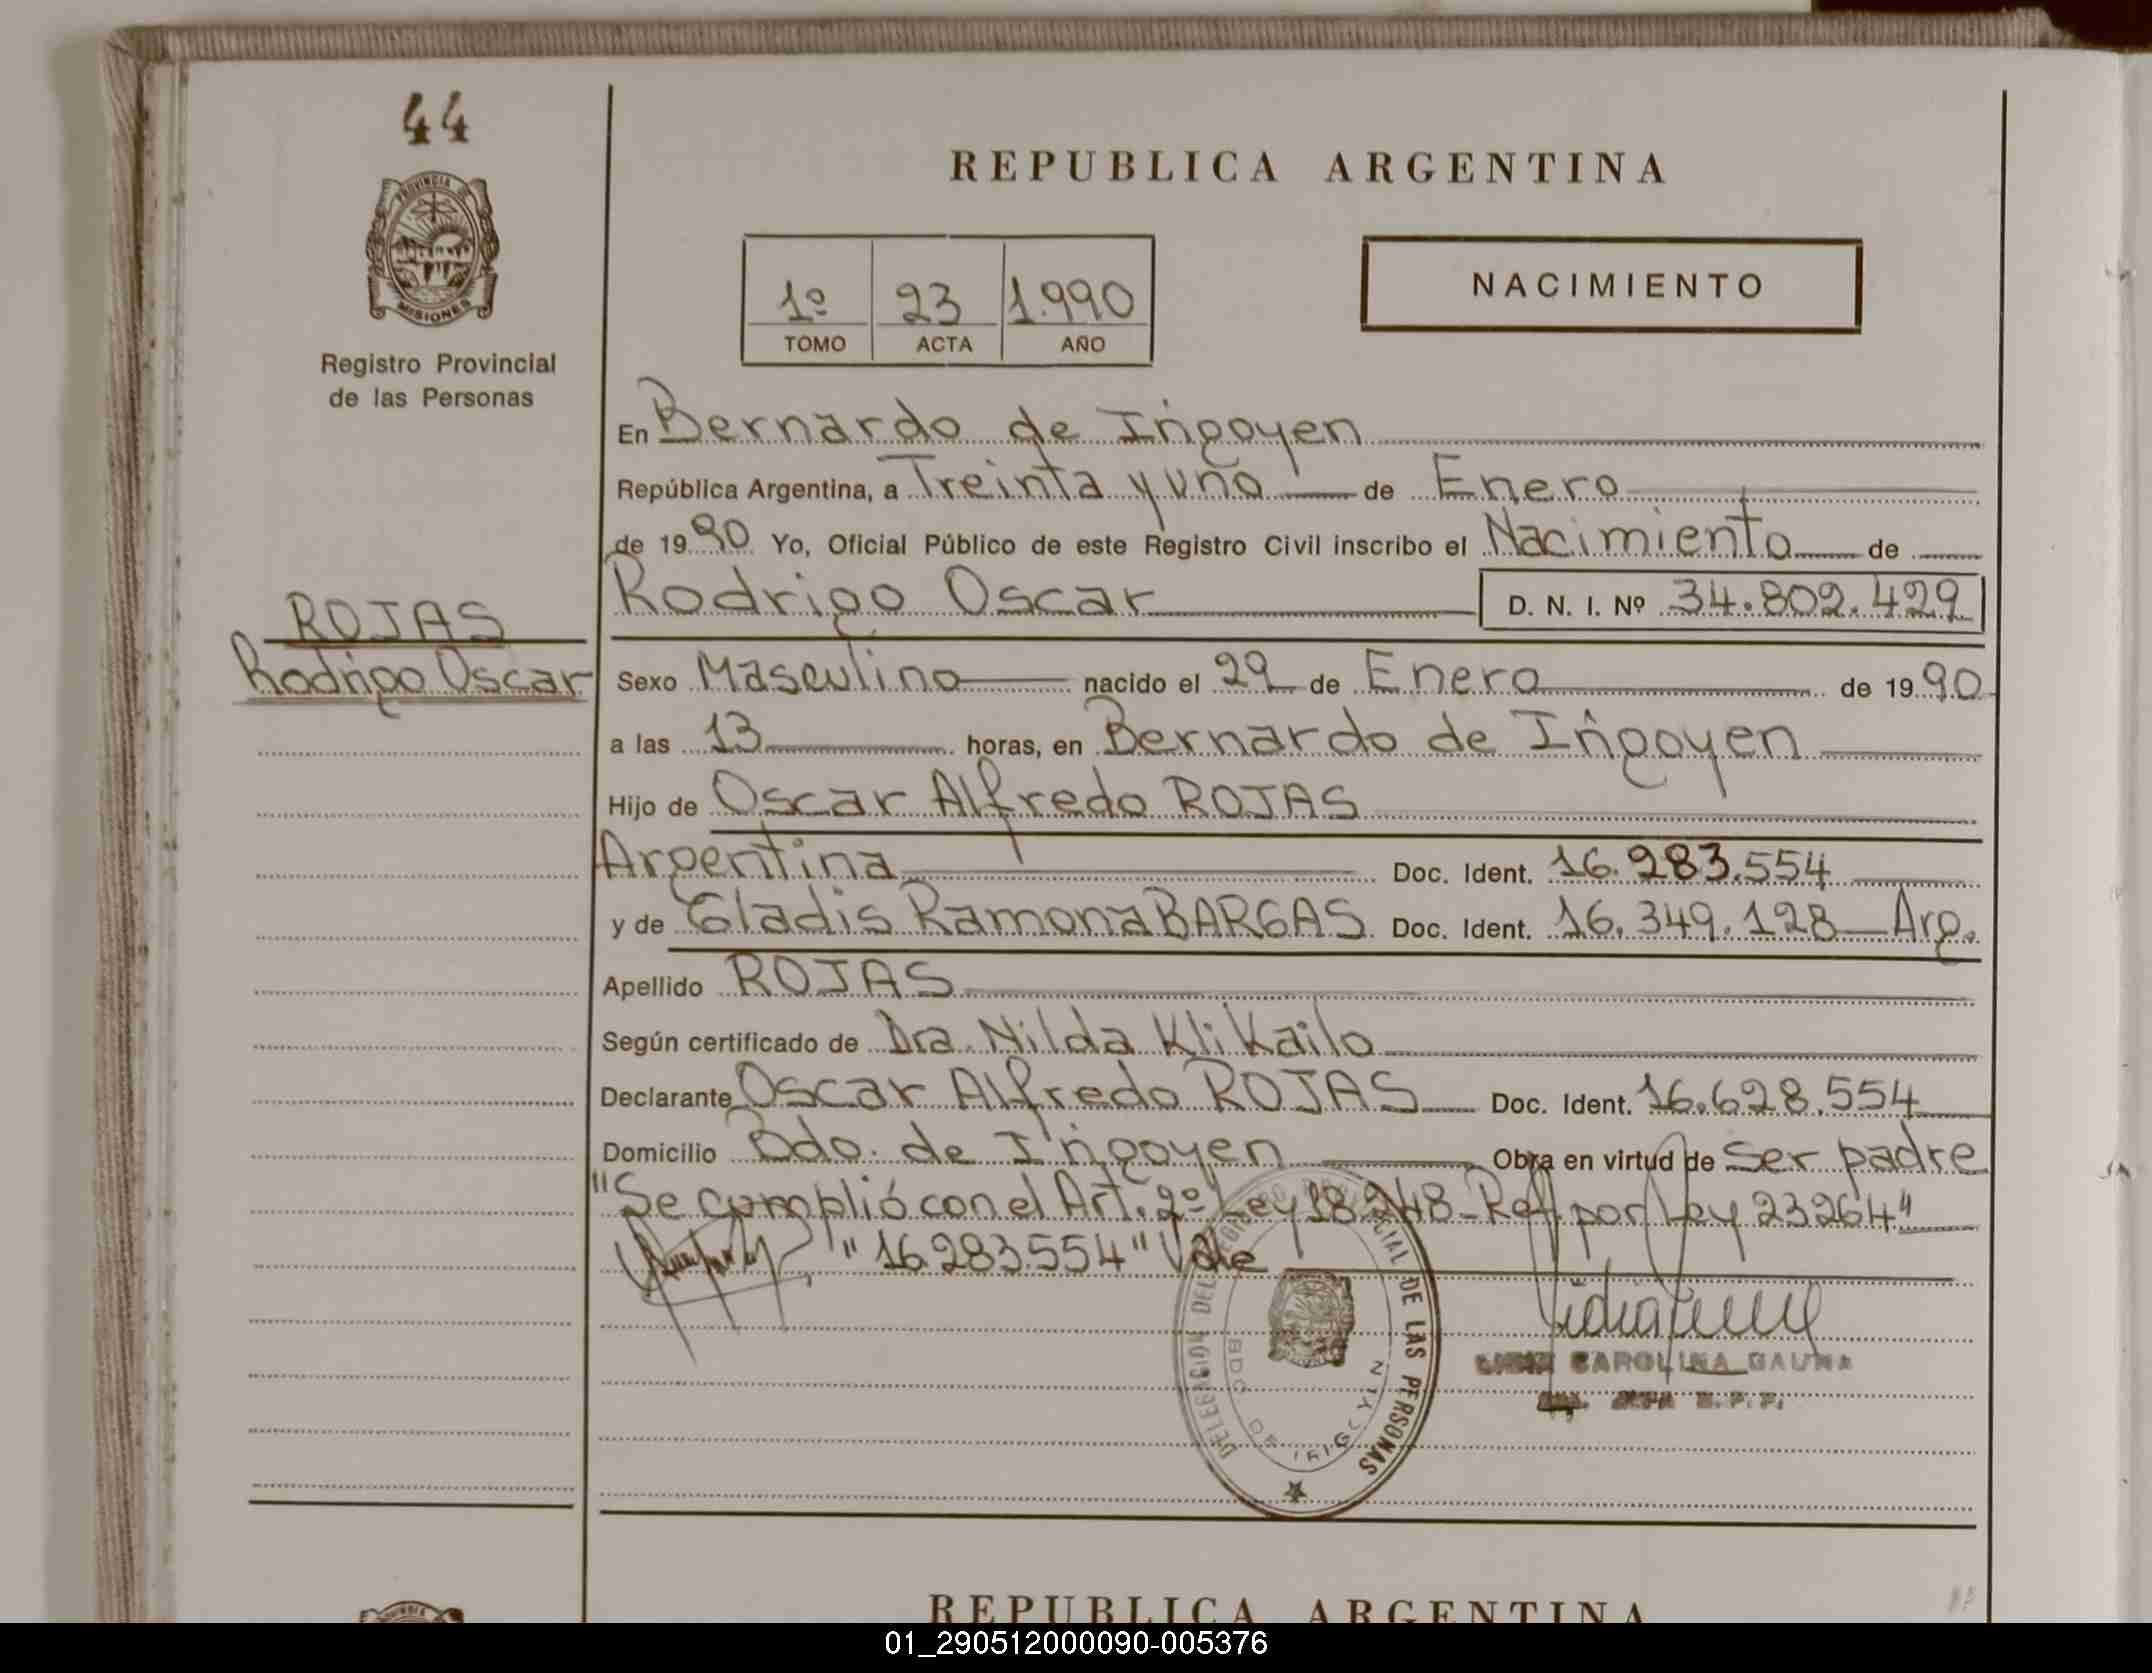 44
PROVINCIA DE
MISIONES
Registro Provincial
de las Personas
REPUBLICA ARGENTINA
1º 23 1.990
TOMO ACTA AÑO
NACIMIENTO
En Bernardo de Irigoyen
República Argentina, a Treinta y uno de Enero
de 1990 Yo, Oficial Público de este Registro Civil inscribo el Nacimiento de
Rodrigo Oscar D. N. I. Nº 34.802.429
ROJAS
Rodrigo Oscar
Sexo Masculino nacido el 29 de Enero de 1990
a las 13 horas, en Bernardo de Irigoyen
Hijo de Oscar Alfredo ROJAS
Argentina Doc. Ident. 16.283.554
y de Gladis Ramona BARGAS Doc. Ident. 16.349.128 Arg.
Apellido ROJAS
Según certificado de Dra. Nilda Klikailo
Declarante Oscar Alfredo ROJAS Doc. Ident. 16.628.554
Domicilio Bdo. de Irigoyen Obra en virtud de ser padre
"Se cumplió con el Art. 2º Ley 18.248 - Ref por Ley 23264"
"16.283.554" Vale
DELEGACION DEL REGISTRO PROVINCIAL DE LAS PERSONAS
BDO. DE IRIGOYEN
CAROLINA GAUNA
JEFA R.P.P.
REPUBLICA ARGENTINA
01_290512000090-005376